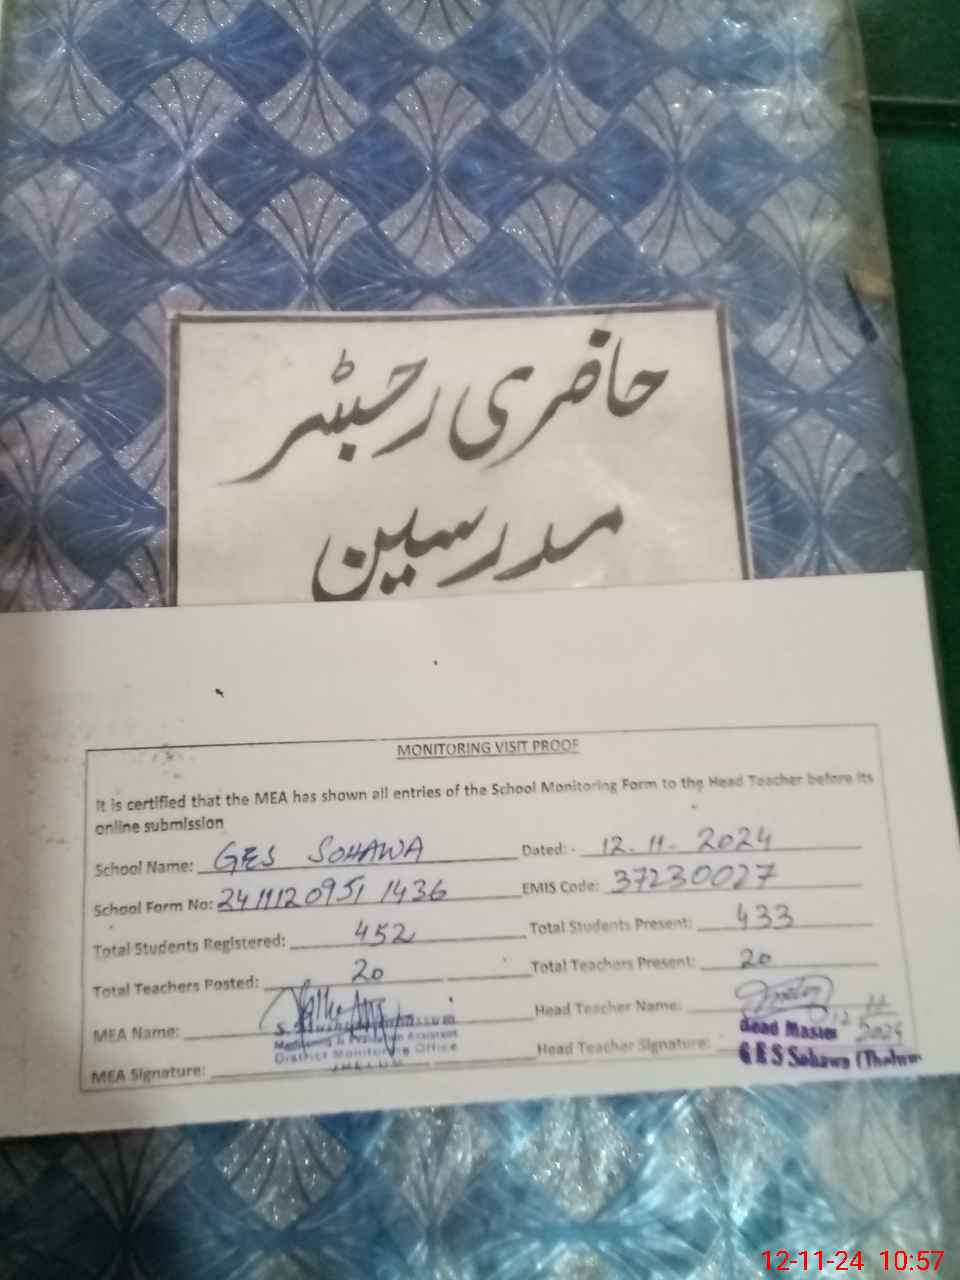 حاضری رجسٹر
مدرسین
MONITORING VISIT PROOF
It is certified that the MEA has shown all entries of the School Monitoring Form to the Head Teacher before its
online submission
School Name: GES SOHAWA Dated: - 12-11-2024
School Form No: 2411120951 1436 EMIS Code: 37230027
Total Students Registered: 452 Total Students Present: 433
Total Teachers Posted: 20 Total Teachers Present: 20
MEA Name: Head Teacher Name:
Monitoring & Evaluation Assistant
District Monitoring Office
JHELUM
12 11 2024
Head Master
GES Sohawa (Jhelum
MEA Signature: Head Teacher Signature:
12-11-24 10:57